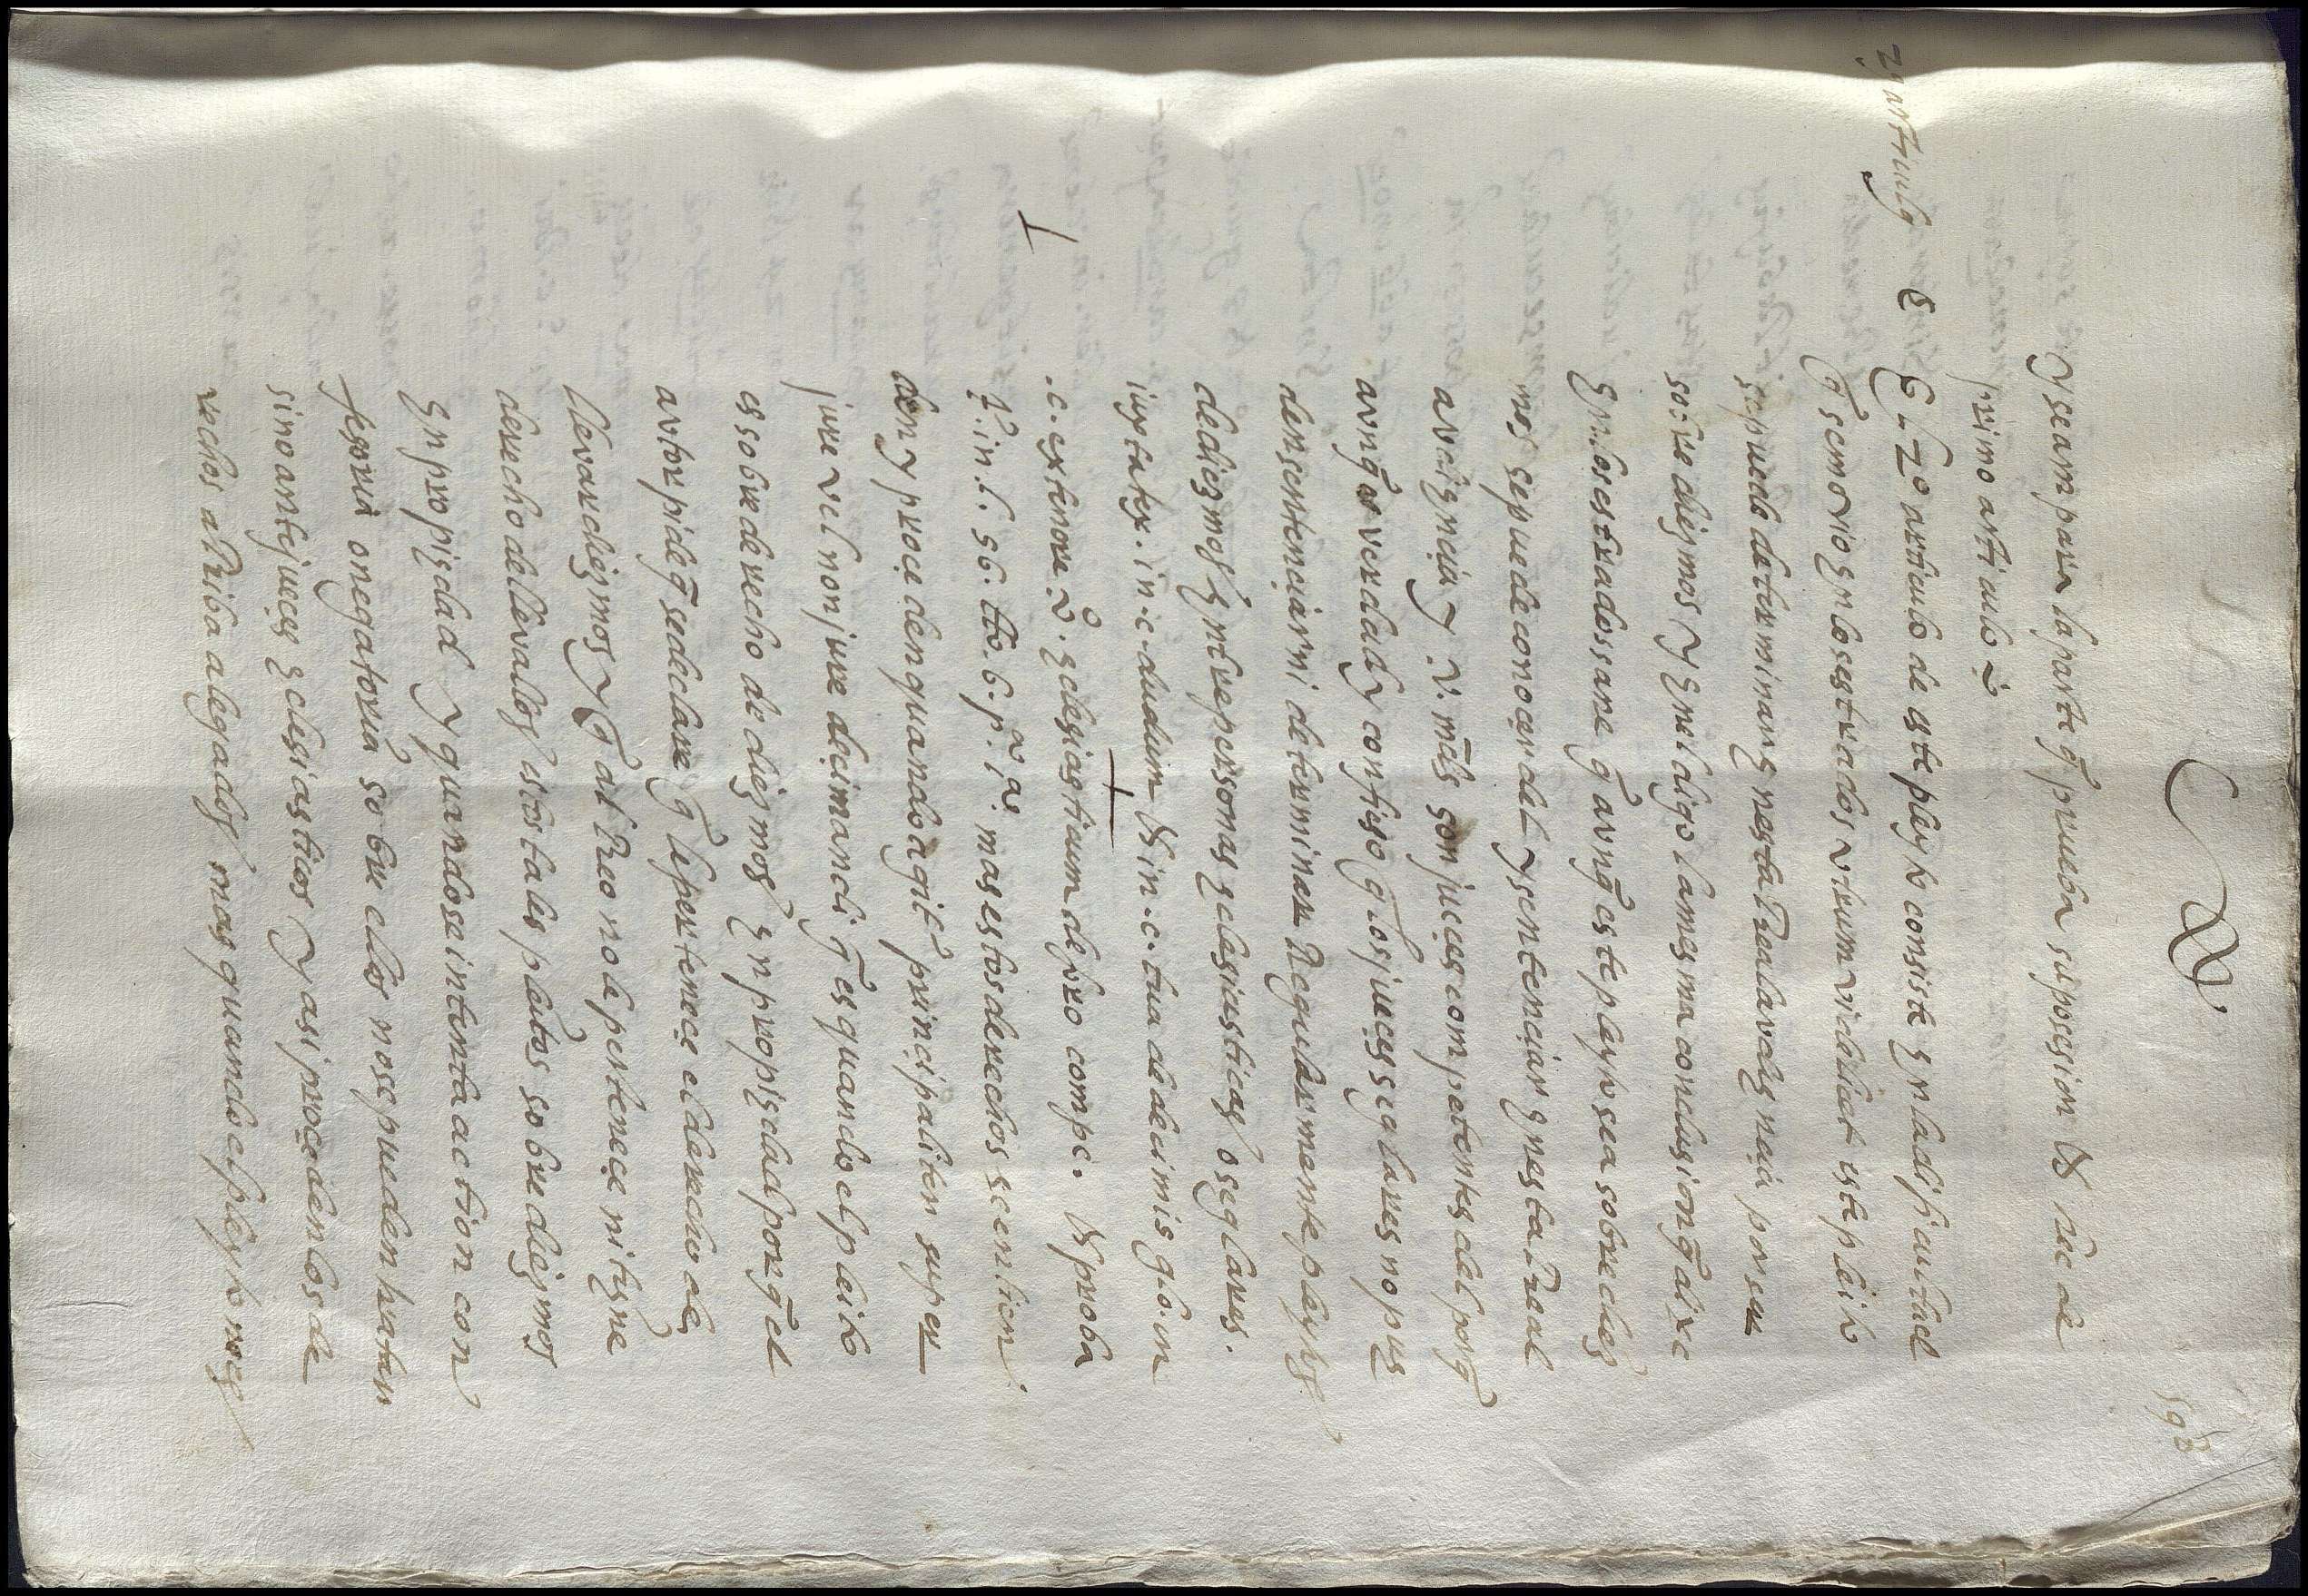 598
y se ampara la parte q̄ prueba su posesion & hec de
primo articulo
2 articulo
El 2º articulo de este pleyto consiste en la dificultad
q̄ se movio en los estrados utrum videlicet este pleito
se puede determinar en esta Real avdiᵉncia por ser
sobre diezmos y en el digo la mesma conclusion q̄ dixe
en los estrados sane q̄ avnq̄ este pleyto sea sobre diez
mos se puede conocer del y sentenciar en esta Real
avdiencia y v. mds son jueces competentes del porq̄
avnq̄ es verdad y confieso q̄ los jueces seglares no pue
den sentenciar ni determinar Regularmente pleytos
de diezmos entre personas eclesiasticas o seglares.
iuxta tex. in .c. dudum & in .c. tua de decimis glo. in
.c. ex tenore eclesiasticum de foro compe. & proba
l. in l. 56. tto. 6. p. 1ª. mas estos derechos se entien
den y proceden quando agit principaliter super
jure vel non jure decimandi q̄ es quando el pleito
es sobre derecho de diezmos en propiedad porq̄ el
avtor pide q̄ se declare q̄ le pertenece el derecho de
llevar diezmos y q̄ al Reo no le pertenece ni tiene
derecho de llevallos estos tales pleitos sobre diezmos
en propiedad y quando se intenta action con
fesoria o negatoria sobre ellos no se pueden tratar
sino ante jueces eclesiasticos y asi proceden los de
rechos aRiba alegados mas quando el pleyto no es